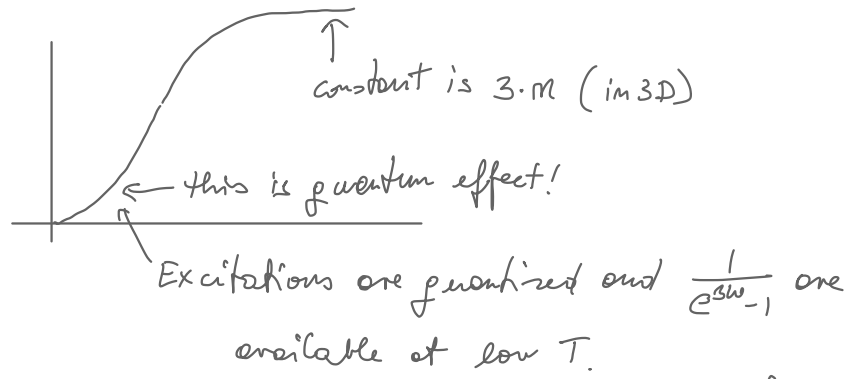 constant is 3·n (in 3D)
this is quantum effect!
Excitations are quantized and 1/(e^{βω}-1) are
available at low T.